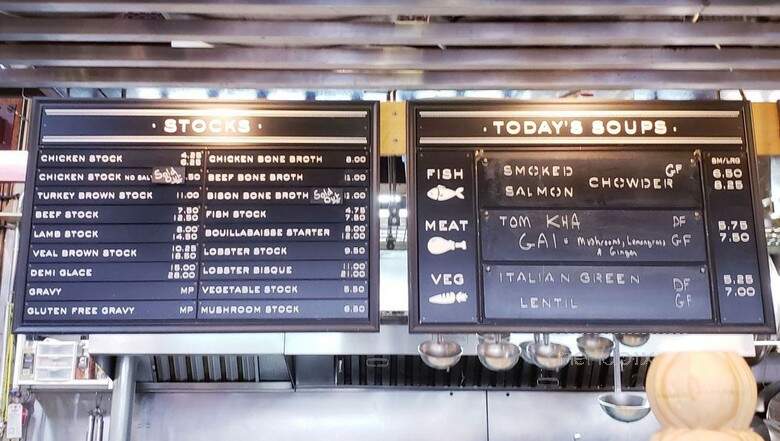 STOCKS
CHICKEN STOCK 4.25 6.25
CHICKEN STOCK NO SALT Sold Out .50
TURKEY BROWN STOCK 11.00
BEEF STOCK 7.50 12.50
LAMB STOCK 8.00 14.50
VEAL BROWN STOCK 10.25 18.50
DEMI GLACE 15.00 28.00
GRAVY MP
GLUTEN FREE GRAVY MP
CHICKEN BONE BROTH 8.00
BEEF BONE BROTH 12.00
BISON BONE BROTH Sold Out .00
FISH STOCK 4.75
BOUILLABAISSE STARTER 8.00 12.00
LOBSTER STOCK 9.50
LOBSTER BISQUE 11.00 21.00
VEGETABLE STOCK 5.50
MUSHROOM STOCK 6.50
TODAY'S SOUPS
SM/LRG
FISH SMOKED SALMON CHOWDER GF 6.50 8.25
MEAT TOM KHA GAI Mushrooms, Lemongrass & Ginger DF GF 5.75 7.50
VEG ITALIAN GREEN LENTIL DF GF 5.25 7.00